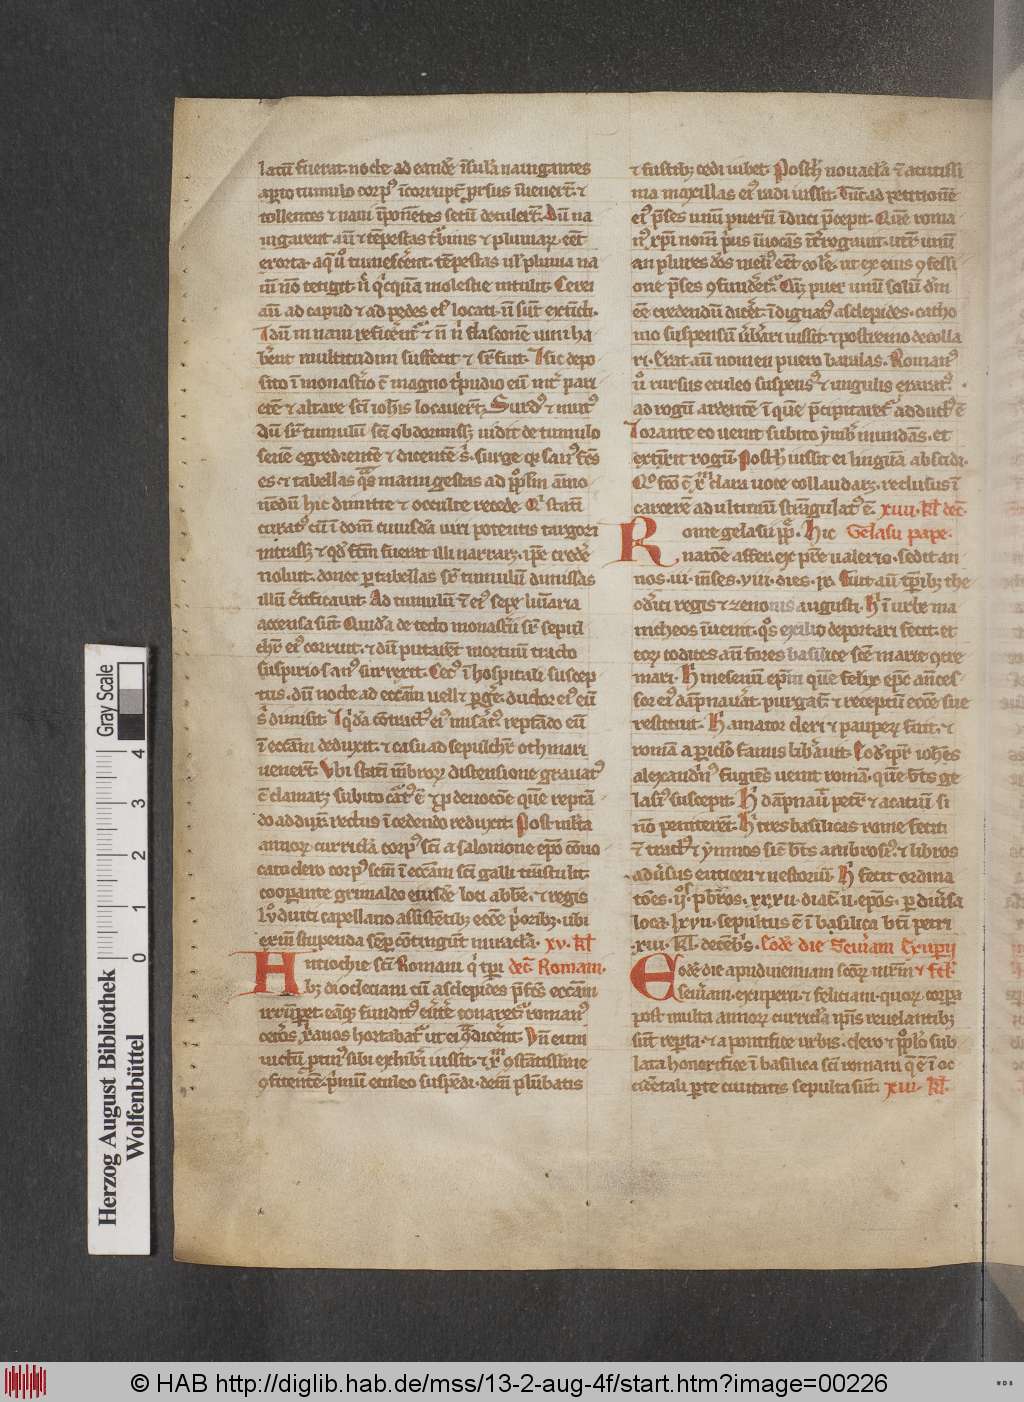 latū fuerat. nocte ad eandē īsulā nauigantes
apto tumulo corpꝰ īcorruptū prsus īuenerūt. et
tollentes et naui īponētes secū detulerūt. Dū na
uigarent aū et tēpestas
erorta. aqꝫ tumescēnt. tēpestas ul pluuia na
uī nō tetigit nͨ qͥcqͣm molestie intulit. Cerei
aū. ad caput et ad pedes eiꝰ locati. nō sūt extīcti.
Dū in naui reficerent et nō nͥ flascone uini ha
berent multitudini suffecit et sr̄ fuit. Isic depo
sito ī monastio cū magno tripudio eū int pari
etē et altare scī iohis locauerūt. Surdꝰ et mutꝰ
Dū sr tumulū scī obdormissꝫ uidit de tumulo
senē egredientē et dicentē sͥ. surge qꝛ sanꝰ fcūs
es. et tabellas qͣs manu gestas ad pplm
hic dimitte et occulte recede. Qi statī
curatꝰ cū ī domū cuiusdā uiri potentis turgori
intrassꝫ et qd fcm fuerat illi narraret. ipe crede
noluit. donec p tabellas sr tumulū dimissas
illū certificauit. Ad tumulū ē eiꝰ sepe luīaria
accensa sūt. Quidā de tecto monasterii sr sepul
chrū eiꝰ corruit. et dū putarēt mortuū tracto
suspirio sanꝰ surrexit. Cecꝰ ī hospitali suscep
tus. dū nocte ad eccām uellet pgē. ductor eiꝰ eū
sͥ dimisit. Qidā contractꝰ ei misertꝰ reptādo eū
ī eccām deduxit. et casu ad sepulchrū othmari
uenerūt. Vbi statī mēbrorꝫ distensione grauatꝰ
cū clamarꝫ subito curatꝰ ē et p deuocōe que reptā
do adduxit rectus īcedendo reduxit. Post multa
annorꝫ curricla corpꝰ scī a salomone epo conuo
cato clero corpꝰ scm ī eccām scī galli trāstulit.
cooperante grimaldo eiusdē loci abbe. et regis
ludiuici capellano assistentibꝫ eccē pioribꝫ. ubi
exim stupenda semp cōtingunt miracla. xv. kl
Antiochie scī Romani qͥ tpri dec. Romani.
bꝫ diocleciani cū asclepides pfcs eccām
irrumpet. eāqꝫ funditꝰ eu'tere conaret romanꝰ
ceteros xpianos hortabat ut ei 9tdicerent. Dn̄ eum
uictū primꝰ sibi exhiberi iussit. et xm 9stātissime
9fitentē. primū eculeo suspēdi. dein plūbatis
et fustibꝫ cedi iubet. Posth nouacla et acutissi
ma maxillas eiꝰ radi iussit. Tūc ad petitionē
eiꝰ pses unū puerū īduci pcepit. Quē roma
nꝰ xpi nomē pius īuocans īterrogauit. utrū unū
an plures deos meliꝰ eēt colere. ut ex eius 9fessi
one pses 9funderet. Cū puer unū solū dm
eē credendū diceret. īdignatꝰ asclepides. catho
mo suspensū urberari iussit. et postremo decolla
ri. Erat aū nomen puero barulas. Romanꝰ
uo rursus eculeo suspensꝰ et ungulis exaratꝰ.
ad rogū ardentē ī quē precipitaret adductꝰ ē
Jorante eo uenit subito imber inundās. et
extīxit rogū. Posth iussit ei linguā abscidi.
Qo fco cū xm clara uoce collaudaret. reclusus ī
carcere ad ultimū strāgulatꝰ ē. xiiii. kl dec.
Rome gelasii pp. Hic Gelasii pape.
natōe affer. ex pre ualerio. sedit an
nos. iii. mēses. viii. dies. ix. Fuit aū tpribꝫ the
odrici regis et zenonis augusti. Hͨ ī urbe ma
nicheos īuenit. qos exilio deportari fecit. et
eorꝫ codices añ fores basilice scē marie cre
mari. Hͨ mesenū epm que felix epc āteces
sor eiꝰ dāpnauāt. purgatū et receptū eccē sue
restituit. Hͨ amator cleri et pauperꝫ fuit. et
romā a periclo famis liberauit. Eodē tpr iohēs
alexandrinꝰ fugiēs uenit romā. quē bts ge
lasiꝰ suscepit. Hͨ dāpnauit petrū et acatiū si
nō peniterent. Hͨ tres basilicas rome fecit.
et tractꝰ et ymnos sic bts ambrosiꝰ. et libros
aduersus euticen et nestoriū. Hͨ fecit ordina
tōes. iios pbros. xxxii. diac. ii. epos. p diuersa
loca. lxvii. sepultus ē ī basilica bti petri
xiii. kl. decebris. Eode die Seuerini Exuperii
Eodē die apud uiennam scōrꝫ mrm et fel.
seuerini. exuperii. et feliciani. quorꝫ corpa
post multa annorꝫ curricla ipis reuelantibꝫ
sūt repta. et a pontifice urbis. clero et pplo sub
lata honorifice ī basilica scī romani q ē ī oc
cidētali parte ciuitatis sepulta sūt. xiii. kl.
Herzog August Bibliothek
Wolfenbüttel
Gray Scale
0 1 2 3 4
© HAB http://diglib.hab.de/mss/13-2-aug-4f/start.htm?image=00226
WDB